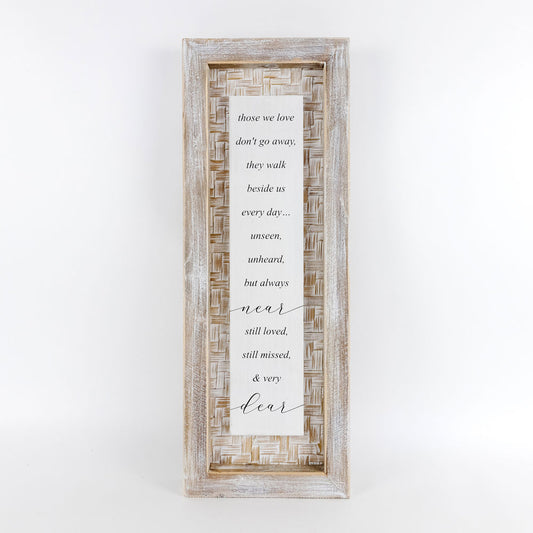 those we love
don't go away,
they walk
beside us
every day...
unseen,
unheard,
but always
near
still loved,
still missed,
& very
dear